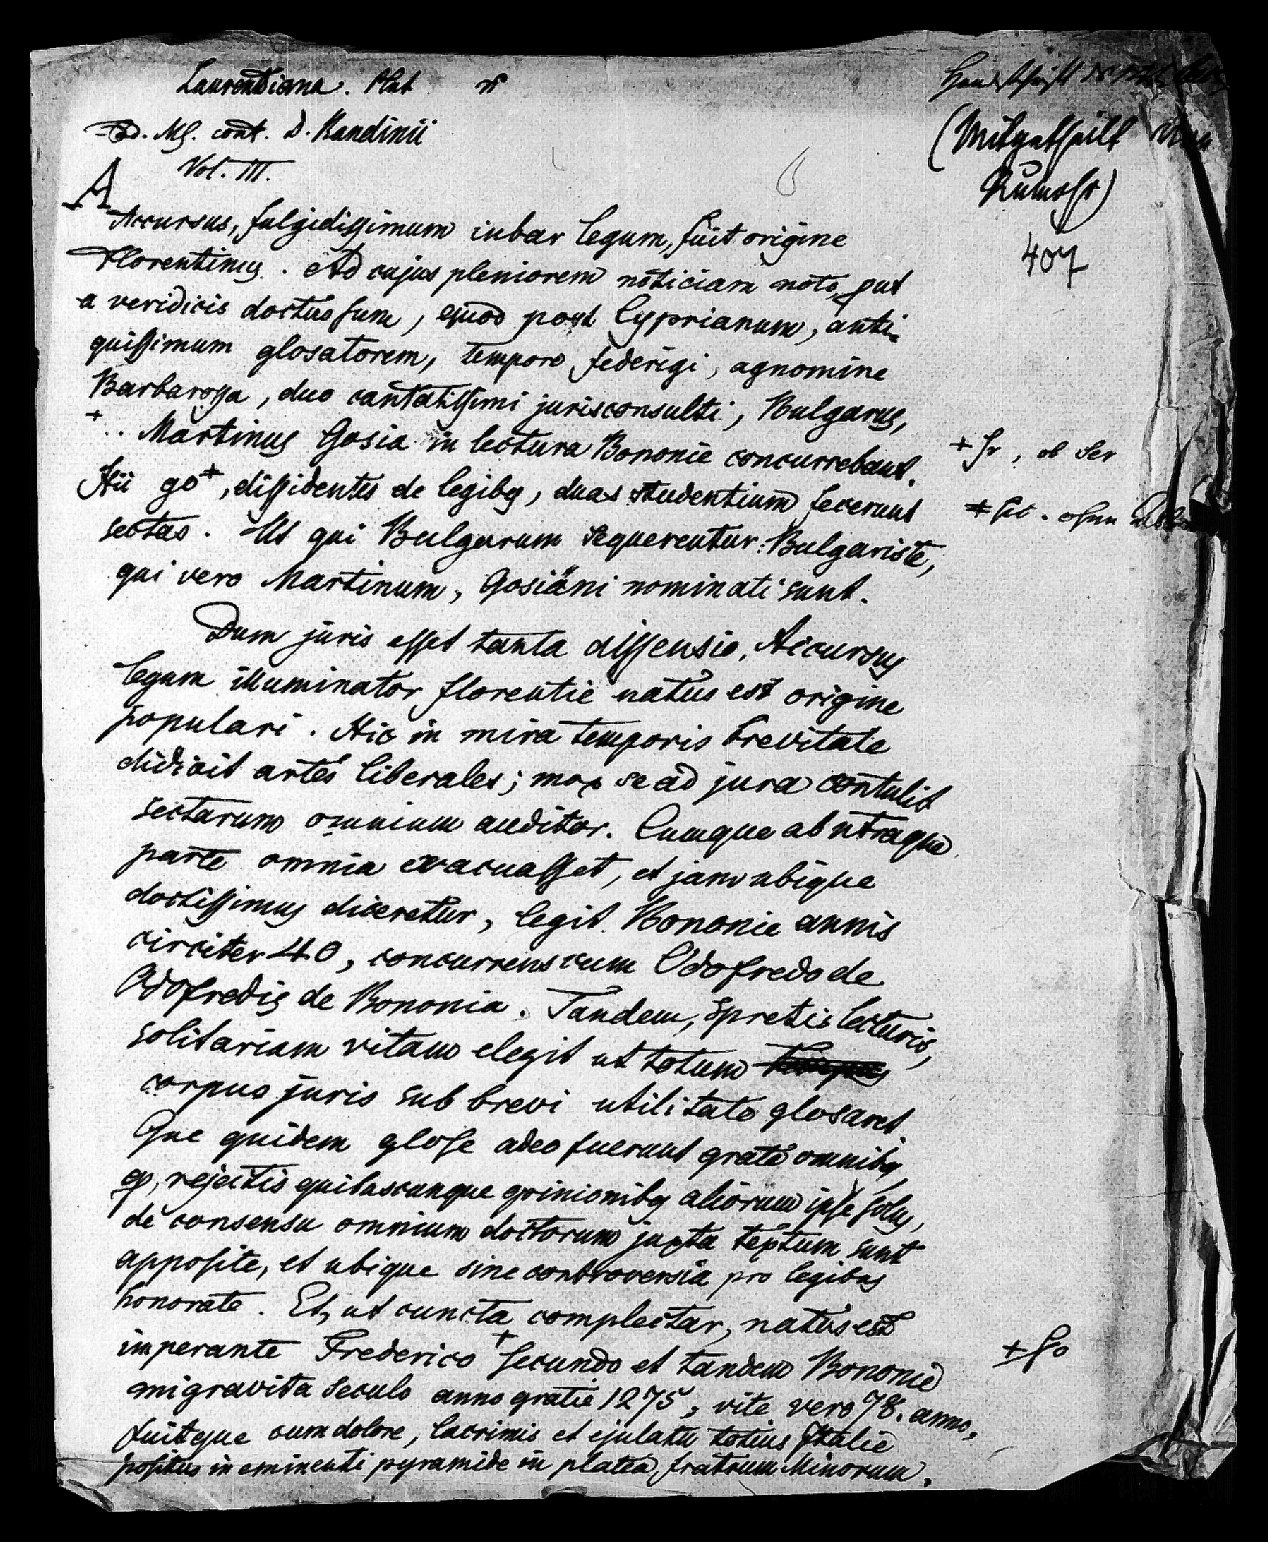 Laurentiana. Plut
Cod. MS. cont. D. Bandinii
Vol. III.
(Mitgetheilt von
Rumohr)
407
A
Accursus, fulgidissimum iubar legum, fuit origine
Florentinus. Ad cujus pleniorem noticiam noto, put
a veridicis doctus sum, quod post Cyprianum, anti-
quissimum glosatorem, tempore federigi, agnomine
Barbarossa, duo cantatissimi jurisconsulti, Bulgarus,
+ .. Martinus Gosia in lectura Bononie concurrebant.
+ Sr, ob Ser
Hii go+, dissidentes de legibus, duas studentium fecerunt
+ sic.
sectas. Ut qui Bulgarum sequerentur: Bulgariste,
qui vero Martinum, Gosiani nominati sunt.
Dum juris esset tanta dissensio, Accursus
legum illuminator florentie natus est origine
populari. Hic in mira temporis brevitate
didicit artes liberales; mox se ad jura contulit
sectarum omnium auditor. Cumque ab utraque
parte omnia exacuasset, et jam ubique
doctissimus diceretur, legit Bononie annis
circiter 40, concurrens cum Odofredo de
Odofredis de Bononia. Tandem, spretis lecturis,
solitariam vitam elegit ut totum
corpus juris sub brevi utilitate glosaret.
Que quidem glose adeo fuerunt grate omnibus,
qp, rejectis quibuscunque opinionibus aliorum ipse solus,
de consensu omnium doctorum juxta textum sunt
apposite, et ubique sine controversia pro legibus
honorate. Et, ut cuncta complectar, natus est
imperante Frederico + secundo et tandem Bononie
+ so
migravit a seculo anno gratie 1275, vite vero 78. anno,
fuitque cum dolore, lacrimis et ejulatu totius Italie
positus in eminenti pyramide in platea fratrum Minorum.